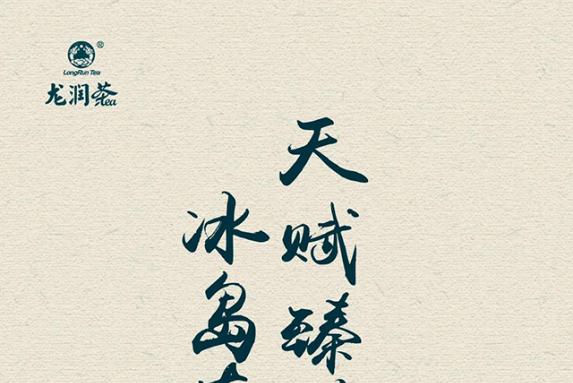 ®
LongRun Tea
龙润茶
Tea
天赋臻
冰岛